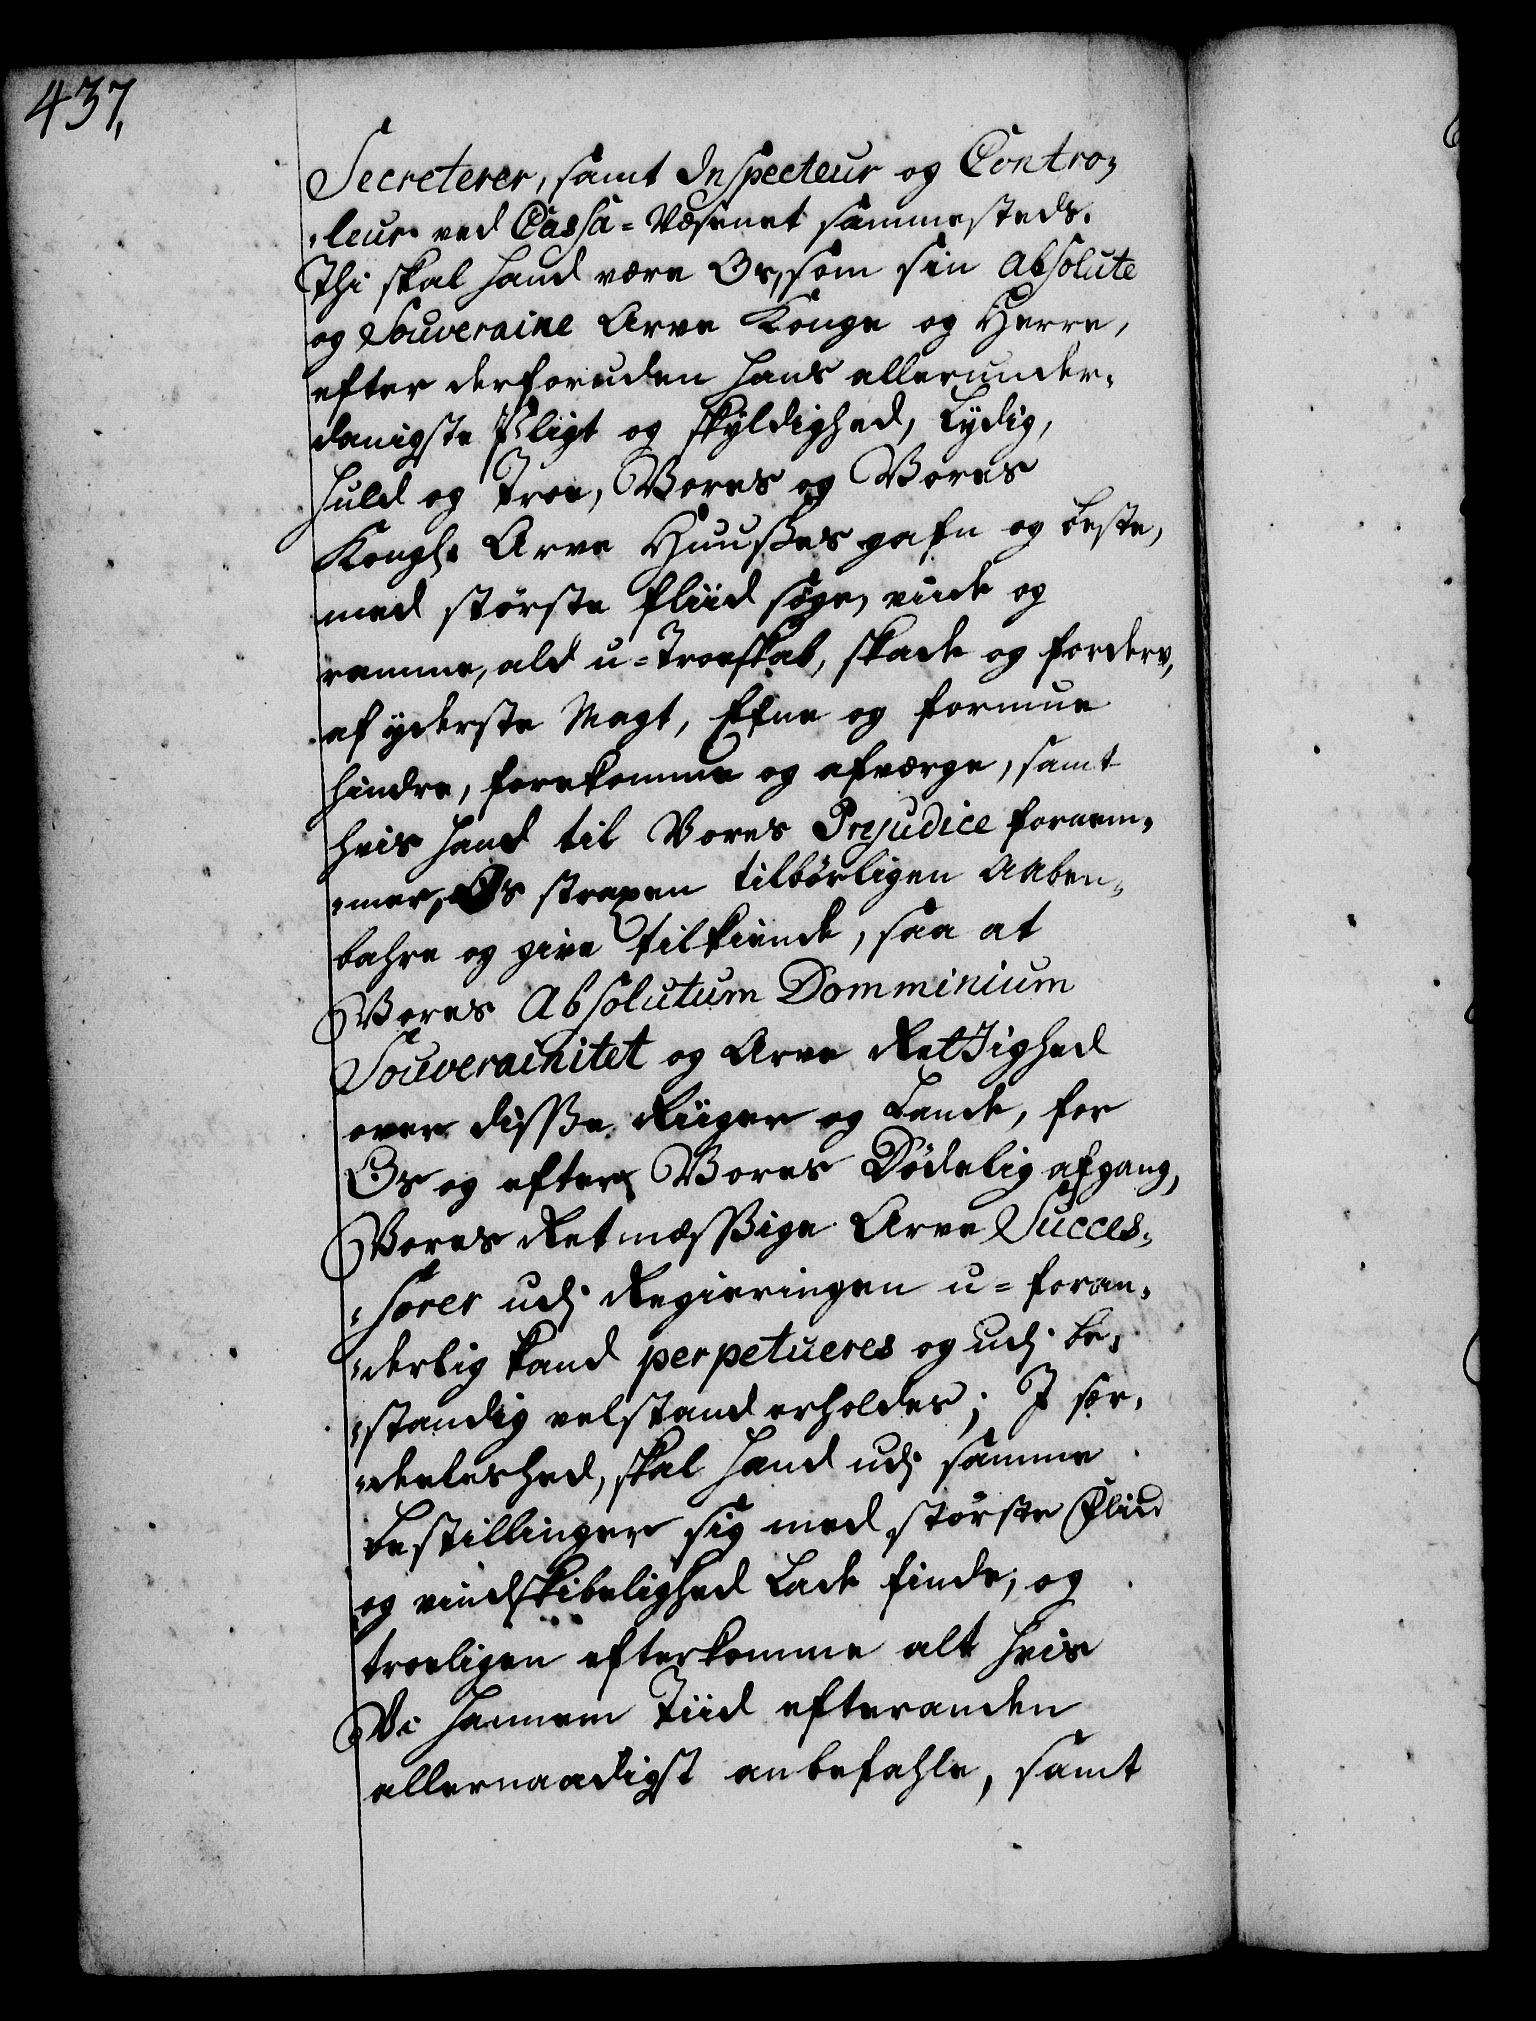 437,
Secreterer, samt Inspecteur og Contro¬
leur ved Cassa-Væsenet sammesteds.
Thi skal hand være Os, som sin absolute
og Souveraine Arve Konge og Herre,
efter derforuden hans allerunder¬
danigste Pligt og skyldighed, Lydig,
huld og Troe, Vores og Vores
Kongl: Arve Huuses gafn og beste,
med største fliid søge, viide og
ramme, ald u-Troeskab, skade og forderv,
af yderste Magt, Efne og formue
hindre, forekomme og afværge, samt
hvis hand til Vores Prejudice fornem¬
mer, Os straxen tilbørligen aaben¬
bahre og give tilkiende, saa at
Vores Absolutum Domminium
Souverainitet og Arve Rettighed
over disse Riiger og Lande, for
Os og efter Vores Dødelig afgang,
Vores Retmæssige Arve Succes¬
sorer udj Regieringen u-foran¬
derlig kand perpetueres og udj be¬
standig velstand erholdes; I sær¬
deeleshed, skal hand udj samme
bestillinger sig med største Fliid
og vindskibelighed Lade finde, og
troeligen efterkomme alt hvis
Vi hannem Tiid efteranden
allernaadigst anbefahle, samt